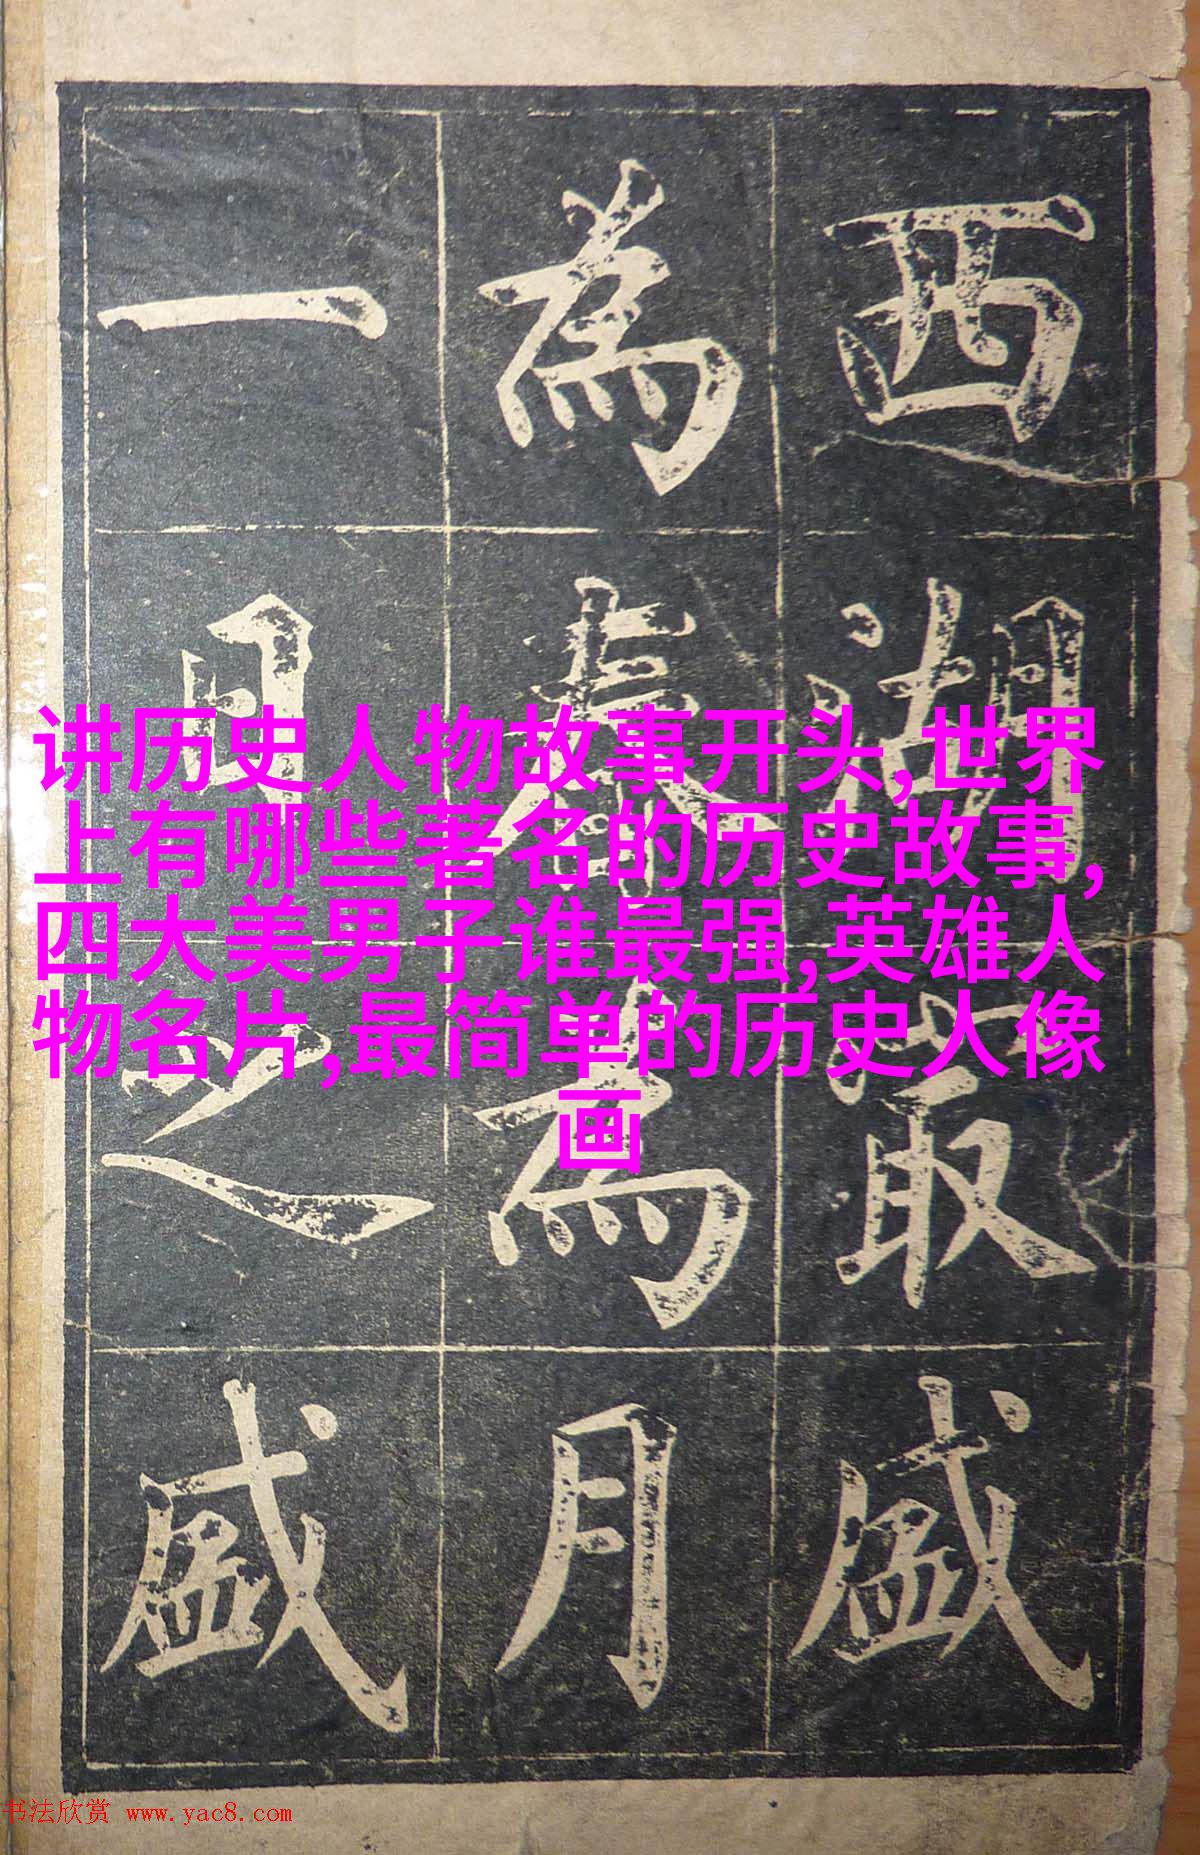 西湖最盛
為春為月
一日之盛
讲历史人物故事开头,世界
上有哪些著名的历史故事,
四大美男子谁最强,英雄人
物名片,最简单的历史人像
画
书法欣赏 www.yac8.com